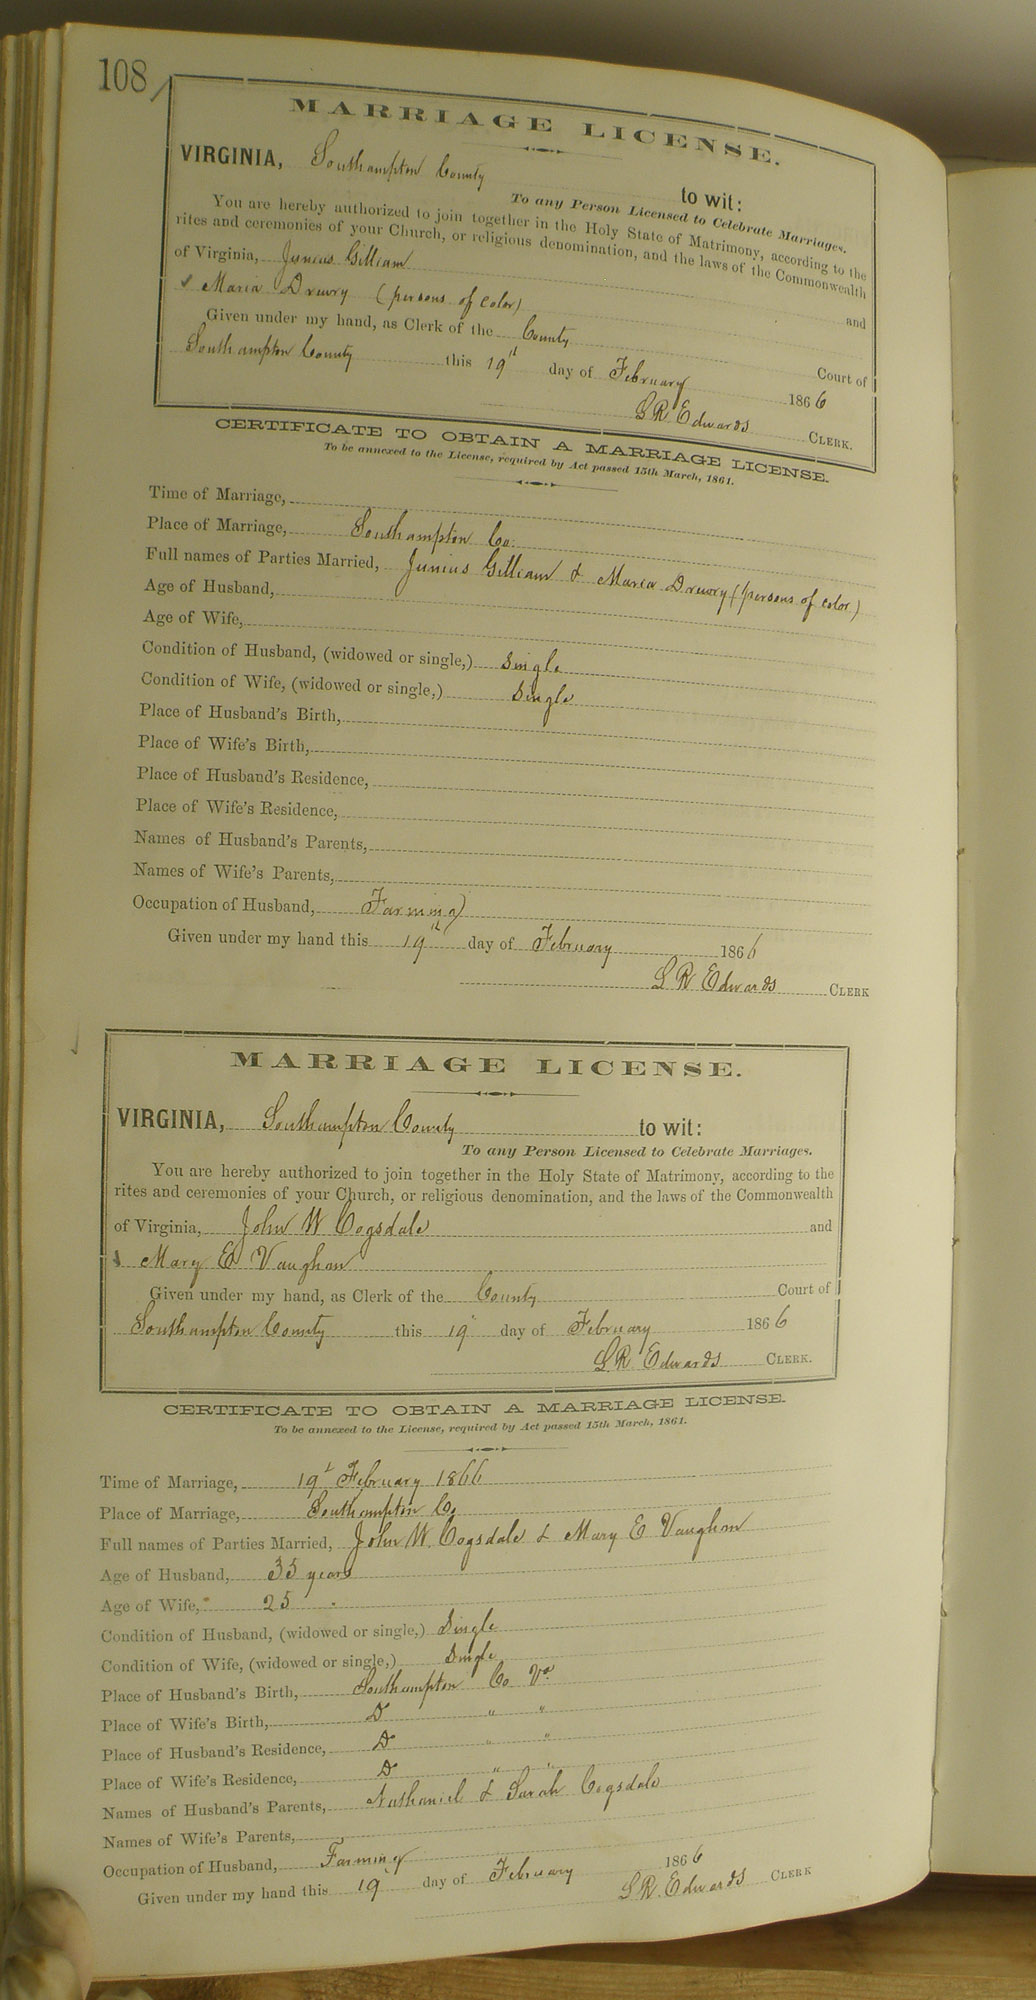 108
MARRIAGE LICENSE.
VIRGINIA, Southampton County to wit:
To any Person Licensed to Celebrate Marriages.
You are hereby authorized to join together in the Holy State of Matrimony, according to the
rites and ceremonies of your Church, or religious denomination, and the laws of the Commonwealth
of Virginia, Junius Gilliam and
Maria Drewry (persons of color)
Given under my hand, as Clerk of the County Court of
Southampton County this 19th day of February 1866
L R Edwards CLERK.
CERTIFICATE TO OBTAIN A MARRIAGE LICENSE.
To be annexed to the License, required by Act passed 15th March, 1861.
Time of Marriage,
Place of Marriage, Southampton Co.
Full names of Parties Married, Junius Gilliam & Maria Drewry (persons of color)
Age of Husband,
Age of Wife,
Condition of Husband, (widowed or single,) Single
Condition of Wife, (widowed or single,) Single
Place of Husband's Birth,
Place of Wife's Birth,
Place of Husband's Residence,
Place of Wife's Residence,
Names of Husband's Parents,
Names of Wife's Parents,
Occupation of Husband, Farming
Given under my hand this 19th day of February 1866
L R Edwards CLERK
MARRIAGE LICENSE.
VIRGINIA, Southampton County to wit:
To any Person Licensed to Celebrate Marriages.
You are hereby authorized to join together in the Holy State of Matrimony, according to the
rites and ceremonies of your Church, or religious denomination, and the laws of the Commonwealth
of Virginia, John W Cogsdale and
Mary E Vaughan
Given under my hand, as Clerk of the County Court of
Southampton County this 19 day of February 1866
L R. Edwards CLERK.
CERTIFICATE TO OBTAIN A MARRIAGE LICENSE.
To be annexed to the License, required by Act passed 15th March, 1861.
Time of Marriage, 19th February 1866
Place of Marriage, Southampton Co
Full names of Parties Married, John W. Cogsdale & Mary E Vaughan
Age of Husband, 35 years
Age of Wife, 25 "
Condition of Husband, (widowed or single,) Single
Condition of Wife, (widowed or single,) Single
Place of Husband's Birth, Southampton Co Va
Place of Wife's Birth, Do " "
Place of Husband's Residence, Do " "
Place of Wife's Residence, Do " "
Names of Husband's Parents, Nathaniel & Sarah Cogsdale
Names of Wife's Parents,
Occupation of Husband, Farming
Given under my hand this 19 day of February 1866
L R. Edwards CLERK